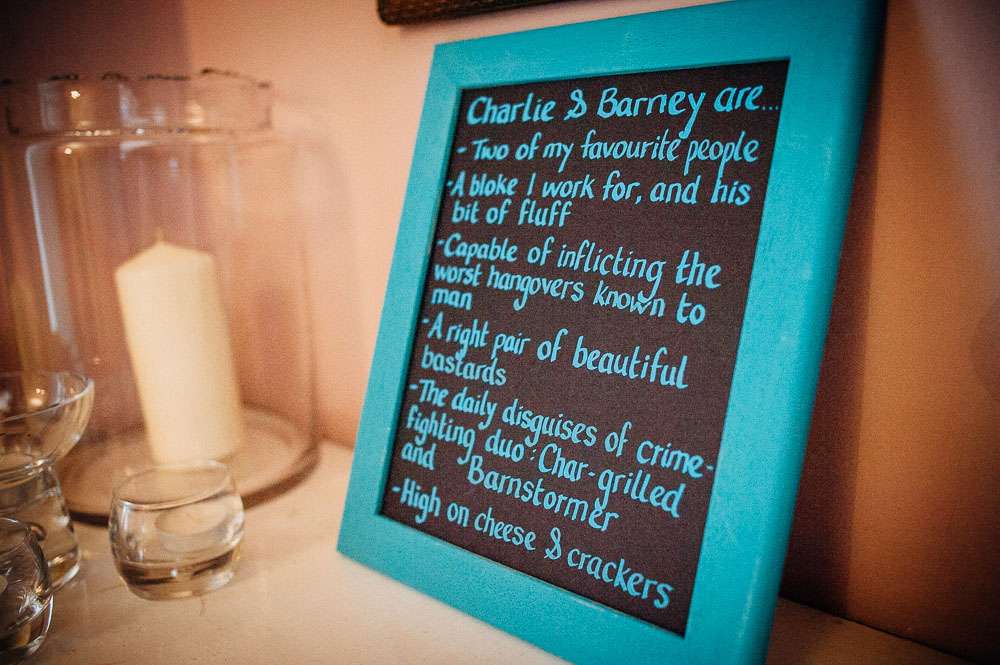 Charlie & Barney are...
- Two of my favourite people
- A bloke I work for, and his
bit of fluff
- Capable of inflicting the
worst hangovers known to
man
- A right pair of beautiful
bastards
- The daily disguises of crime-
fighting duo: Char-grilled
and Barnstormer
- High on cheese & crackers